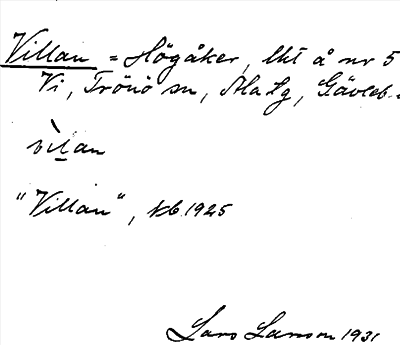 Villan = Högåker, lht å nr 5
Vi, Trönö sn, Ala tg, Gävleb.
vìlan
"Villan", kb 1925
Lars Larsson 1931